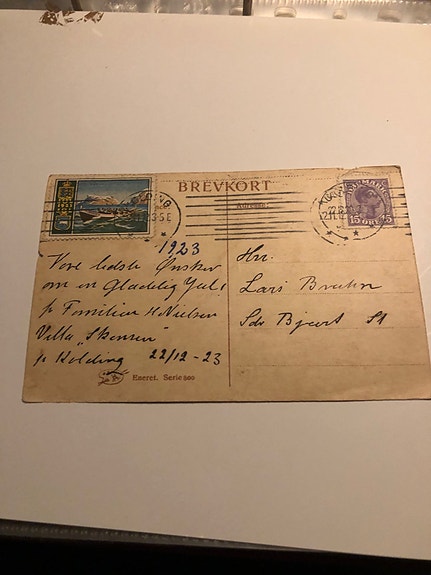 BREVKORT
Adresse:
DANMARK
15 ØRE 15
1923
Vore bedste Ønsker
om en Glædelig Jul!
fr Familien H. Nielsen
Villa „Skansen"
pr Kolding 22/12-23
Eneret. Serie 500
Hrr.
Lars Bruhn
Sdr Bjert St